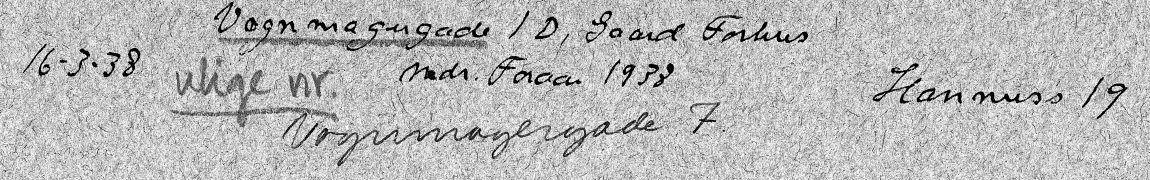 Vognmagergade 1 D, Gaard Forhus
16-3-38
ulige nr.
ndr. Foraar 1938
Hannuss 19
Vognmagergade 7.